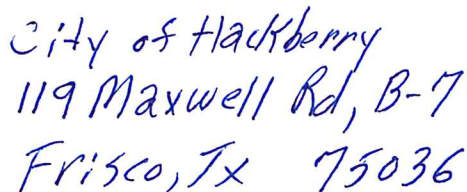 City of Hackberry
119 Maxwell Rd, B-7
Frisco, Tx 75036